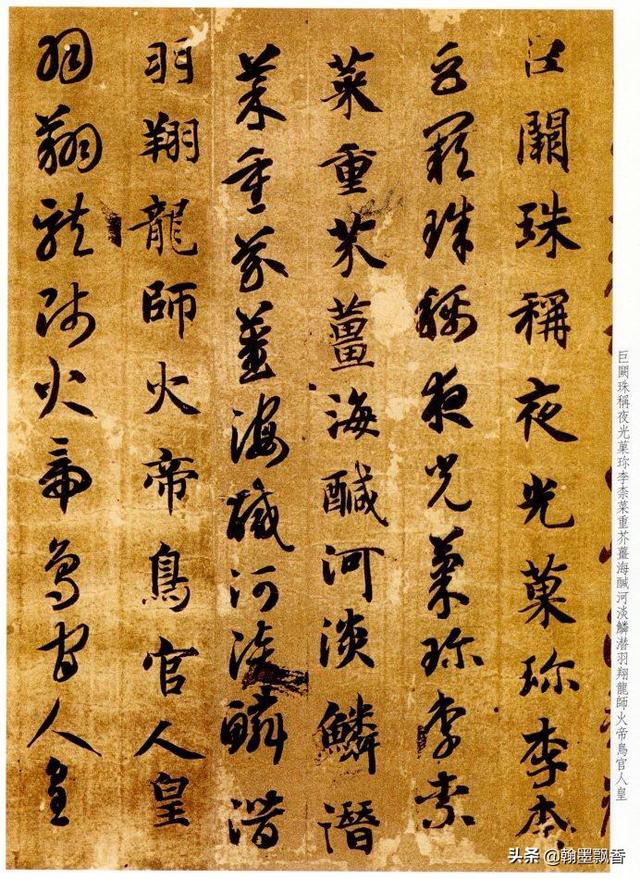 巨闕珠稱夜光菓珎李柰菜重芥薑海醎河淡鱗潜羽翔龍師火帝鳥官人皇
巨闕珠稱夜光菓珎李柰
巨闕珠稱夜光菓珎李柰
菜重芥薑海醎河淡鱗潛
菜重芥薑海醎河淡鱗潛
羽翔龍師火帝鳥官人皇
羽翔龍師火帝鳥官人皇
头条 @翰墨飘香